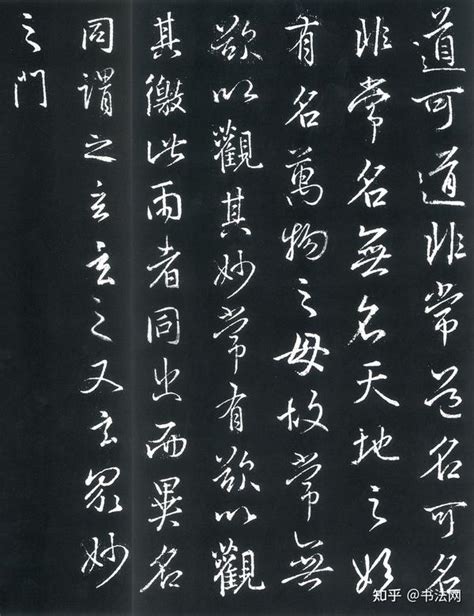 道可道非常道名可名
非常名無名天地之始
有名萬物之母故常無
欲以觀其妙常有欲以觀
其徼此兩者同出而異名
同謂之玄玄之又玄眾妙
之門
知乎 @书法网